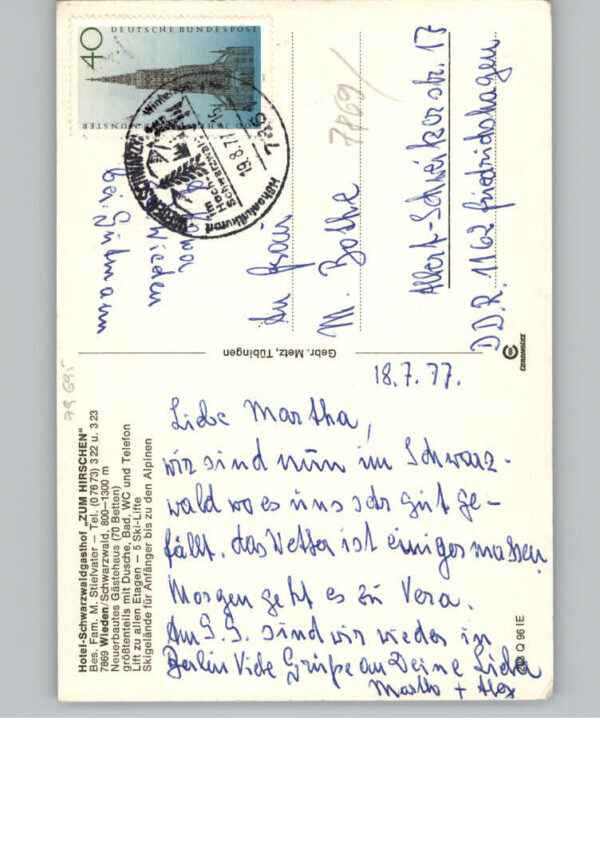 Hotel-Schwarzwaldgasthof „ZUM HIRSCHEN"
Bes. Fam. M. Stiefvater – Tel. (07673) 322 u. 323
7869 Wieden/Schwarzwald, 800–1300 m
Neuerbautes Gästehaus (70 Betten)
größtenteils mit Dusche, Bad, WC und Telefon
Lift zu allen Etagen – 5 Ski-Lifte
Skigelände für Anfänger bis zu den Alpinen
18.7.77.
Liebe Martha,
wir sind nun im Schwarz-
wald wo es uns sehr gut ge-
fällt, das Wetter ist einigermassen
Morgen geht es zu Vera.
Am 9.9. sind wir wieder in
Berlin Viele Grüße an Deine Lieben
Martha + Alex
Gebr. Metz, Tübingen
CHROMOLUX
203 Q 96 IE
DEUTSCHE BUNDESPOST
40
MÜNSTER
7867
19.8.77
WIEDEN-SCHWARZW
Höhenluftkurort
Im
Hoch
Schwarzwald
Wieden
bei
7869/
An Frau
M. Bothe
Albert-Schweitzerstr. 17
DDR. 1162 Friedrichshagen
79 695